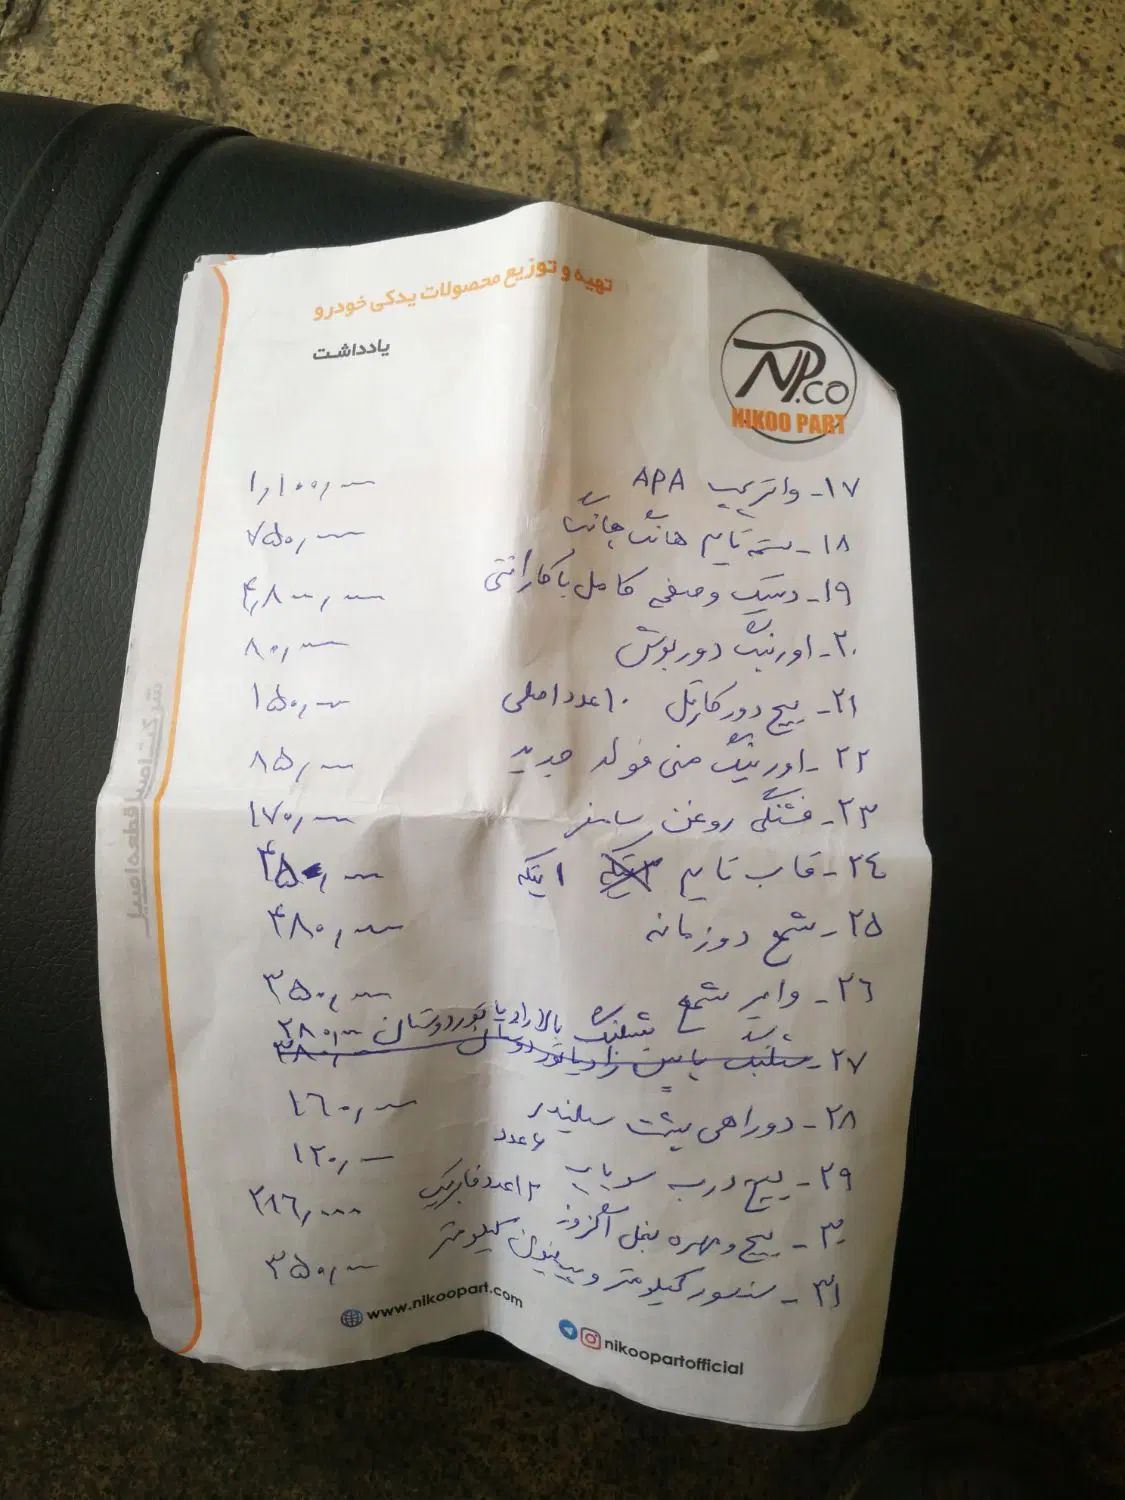 تهیه و توزیع محصولات یدکی خودرو
یادداشت
NP.CO
NIKOO PART
۱۷- واترپمپ APA ۱,۱۰۰,۰۰۰
۱۸- تسمه تایم هانگ چانگ ۷۵۰,۰۰۰
۱۹- دیسک و صفحه کامل با گارانتی ۴,۸۰۰,۰۰۰
۲۰- اورینگ دور بوش ۸۰,۰۰۰
۲۱- پیچ دور کارتل ۱۰ عدد اصلی ۱۵۰,۰۰۰
۲۲- اورینگ منی فولد جدید ۸۵,۰۰۰
۲۳- فشنگی روغن ۱۷۰,۰۰۰
۲۴- قاب تایم ۳ تیکه ۱ تیکه ۴۵۰,۰۰۰
۲۵- شمع دوزمانه ۴۸۰,۰۰۰
۲۶- وایر شمع ۳۵۰,۰۰۰
شیلنگ بالا رادیاتور دوستان ۲۸۰,۰۰۰
۲۷- شیلنگ پایین رادیاتور دوستان ۳۸۰,۰۰۰
۲۸- دوراهی پشت سیلندر ۱۶۰,۰۰۰
۲۹- پیچ درب سوپاپ ۶ عدد ۱۲۰,۰۰۰
۳۰- پیچ و مهره بغل اگزوز ۱۲ عدد فابریک ۲۱۶,۰۰۰
۳۱- سنسور کیلومتر و پینیون کیلومتر ۳۵۰,۰۰۰
www.nikoopart.com
nikoopartofficial